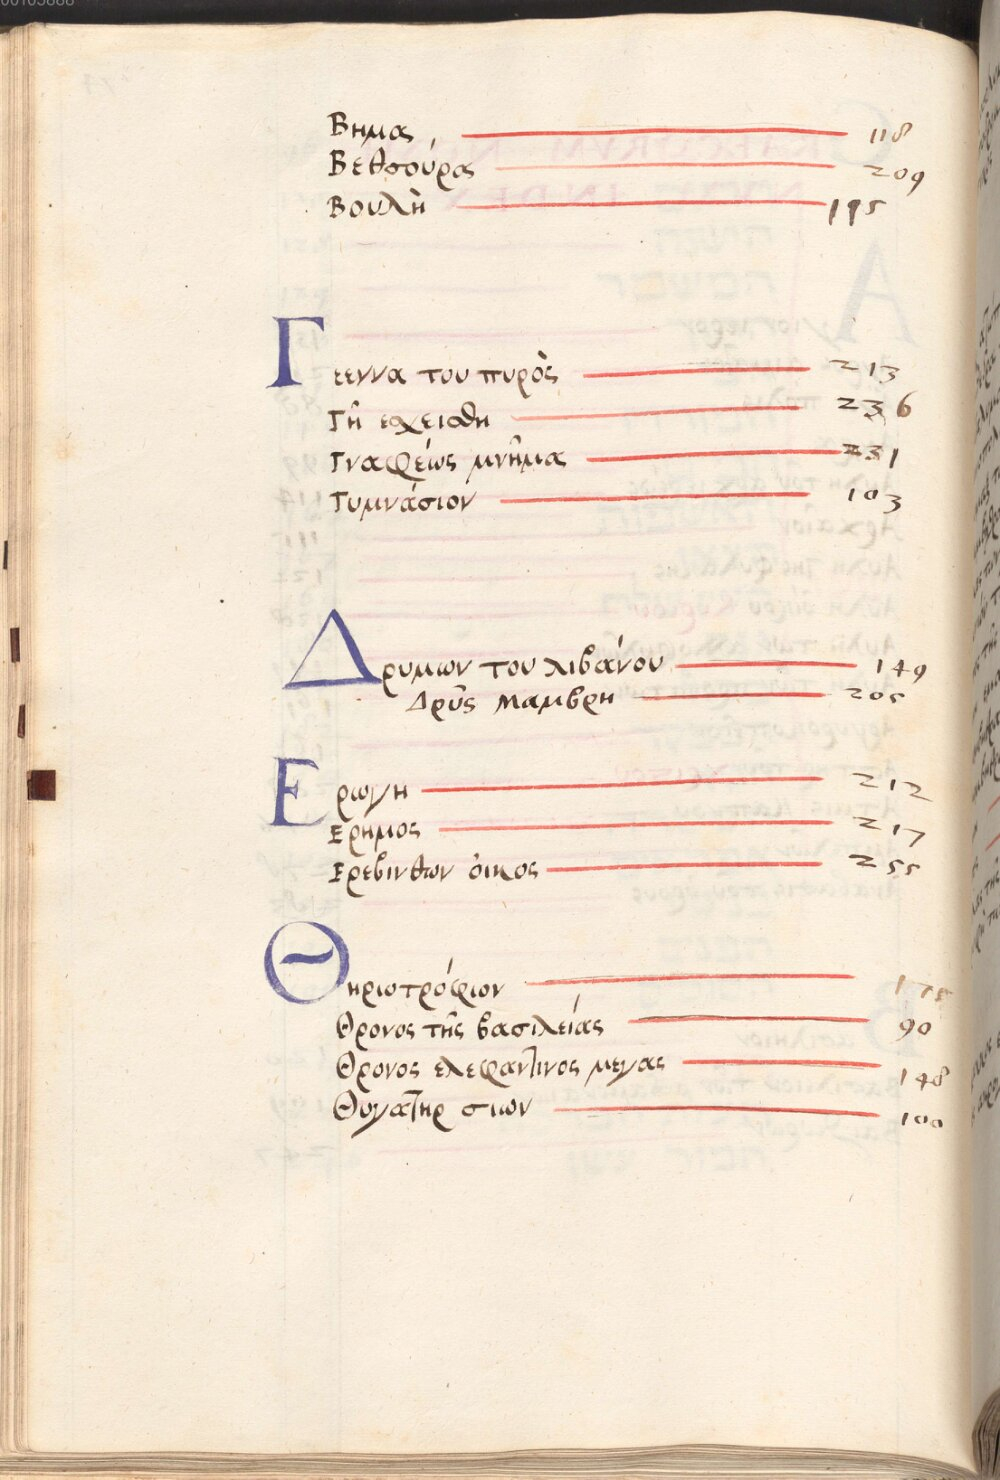 Βημας 118
Βεθσούρα 209
Βουλὴ 195
Γεεννα του πυρὸς 213
Γῆ 236
Γναφέως μνῆμα 231
Γυμνάσιον 103
Δρυμων του λιβάνου 149
Δρῦς Μαμβρη 205
Ερωγη 212
Ερημος 217
Ερεβινθων ὀικος 255
Θηριοτρόφιον 175
Θρονος τῆς βασιλείας 90
Θρονος ελεφαντινος μεγας 148
Θυγατηρ σιων 100